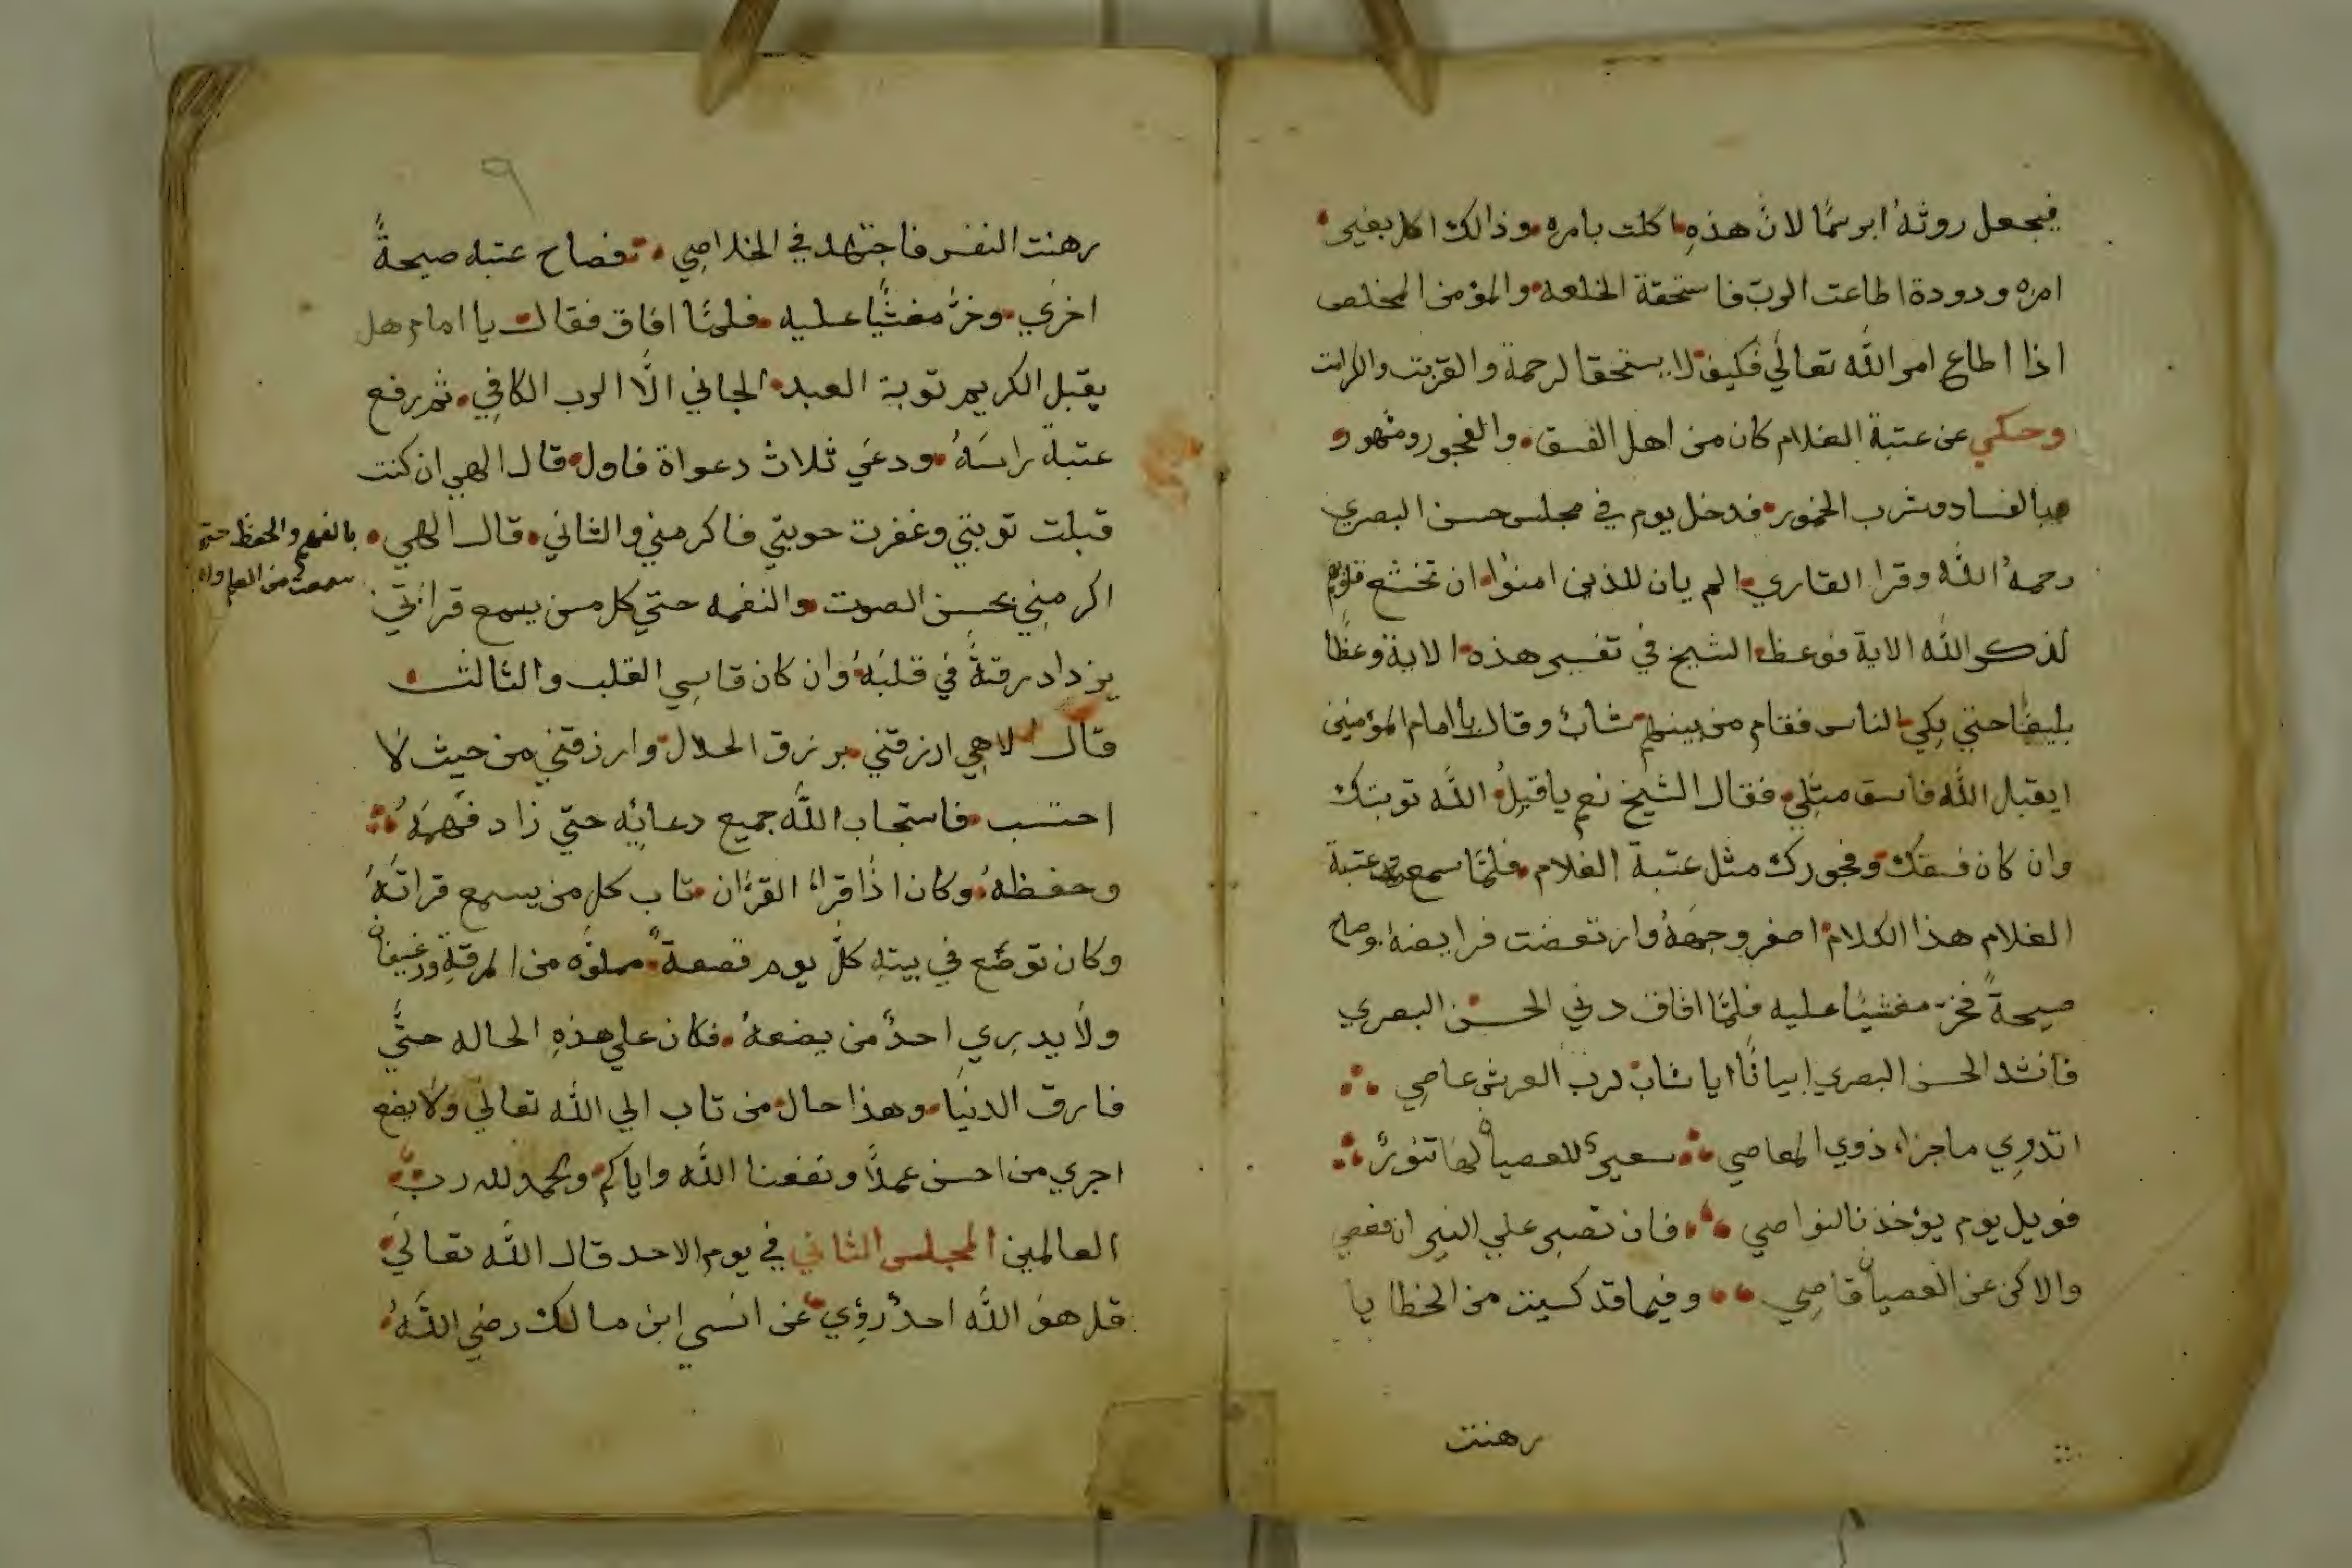 فيجعل روثهُ ابرسمًا لانّ هذهِ اكلت بامره وذالك اكل بغير
امره ودودة اطاعت الربّ فاستحقة الخلعه والمؤمن المخلص
اذا اطاع امر اللّه تعالي فكيف لا يستحقا لرحمة والقربت والكرامت
وحكي عن عتبة الغلام كان من اهل الفسق والفجور ومشهور
بالفساد وشرب الخمور فدخل يوم في مجلس حسن البصري
رحمهُ اللّه وقرا القاري الم يان للذين امنوا ان تخشع قلوبهم
لذكر اللّه الاية فوعظ الشيخ في تفسير هذه الاية وعظًا
بليغًا حتي بكي الناس فقام من بينهم شابٌ وقال يا امام المؤمنين
ايقبل اللّه فاسق مثلي فقال الشيخ نعم ياقبلُ اللّه توبتك
وان كان فسقك وفجورك مثل عتبة الغلام فلمّا سمع عتبة
الغلام هذا الكلام اصفر وجههُ وارتعضت فرايضهُ وصاح
صيحةً فخرّ مغشيًا عليه فلمّا افاق دني الحسن البصري
فانشد الحسن البصري ابياتًا ايا شابّ لربّ العرش عاصِي
اتدرِي ماجزاء ذوي المعاصي سعيرٌ للعصيان لها تنورٌ
فويل يوم يؤخذ نالنواصي فان تصبر علي النيران فعصي
والاكن عن العصيان قاصِي وفيما قد كسبت من الخطايا
رهنت
٩
رهنت النفس فاجتهد في الخلاصِي فصاح عتبه صيحةً
اخري وخرّ مغشيًا عليه فلمّا افاق فقال يا امام هل
يقبل الكريم توبة العبد الجاني الّا الرب الكافِي ثم رفع
عتبة راسَهُ ودعَي ثلاث دعواة فاول قال الهي ان كنت
قبلت توبتي وغفرت حوبتي فاكرمني والثاني قال الهي
بالفهم والحفظ حتي
سمعت من العلم
اكرمنِي بحسن الصوت والنغمه حتي كل من يسمع قراتي
يزداد رقتةً في قلبَهُ وان كان قاسِي القلب والثالث
قال الاهِي ارزقني برزق الحلال وارزقني من حيث لا
احتسب فاستجاب اللّه جميع دعائِه حتي زاد فهمَهُ
وحفظهُ وكان اذا قراء القرءان تاب كل من يسمع قراتَهُ
وكان توضع في بيتهِ كلّ يوم قصعةً مملوّه من المرقةِ ورغيفان
ولا يدرِي احدٌ من يضعهُ فكان علي هذهِ الحاله حتّي
فارق الدنيا وهذا حال من تاب الي اللّه تعالي ولا يضع
اجري من احسن عملاً ونفعنا اللّه واياكم والحمد لله رب
العالمين المجلس الثاني في يوم الاحد قال اللّه تعالي
قل هو اللّه احدٌ رؤي عن انسي ابن مالك رضي اللّهُ